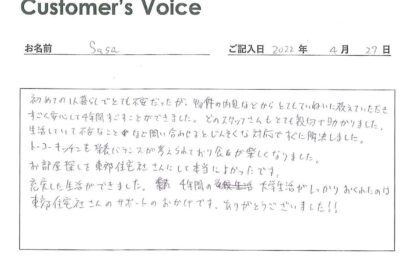 Customer's Voice
お名前 Sasa ご記入日 2022 年 4 月 27 日
初めての1人暮らしでとても不安だったが、物件の内見などからとてもていねいに教えていただき
すごく安心して4年間すごすことができました。どのスタッフさんもとても親切で助かりました。
生活していて不安なことなど問い合わせるとじんそくな対応ですぐに解決しました。
トーコーキッチンも栄養バランスが考えられており食が楽しくなりました。
お部屋探しを東郊住宅社さんにして本当によかったです。
充実した生活ができました。4年間の大学生活がしっかりおくれたのは
東郊住宅社さんのサポートのおかげです、ありがとうございました!!